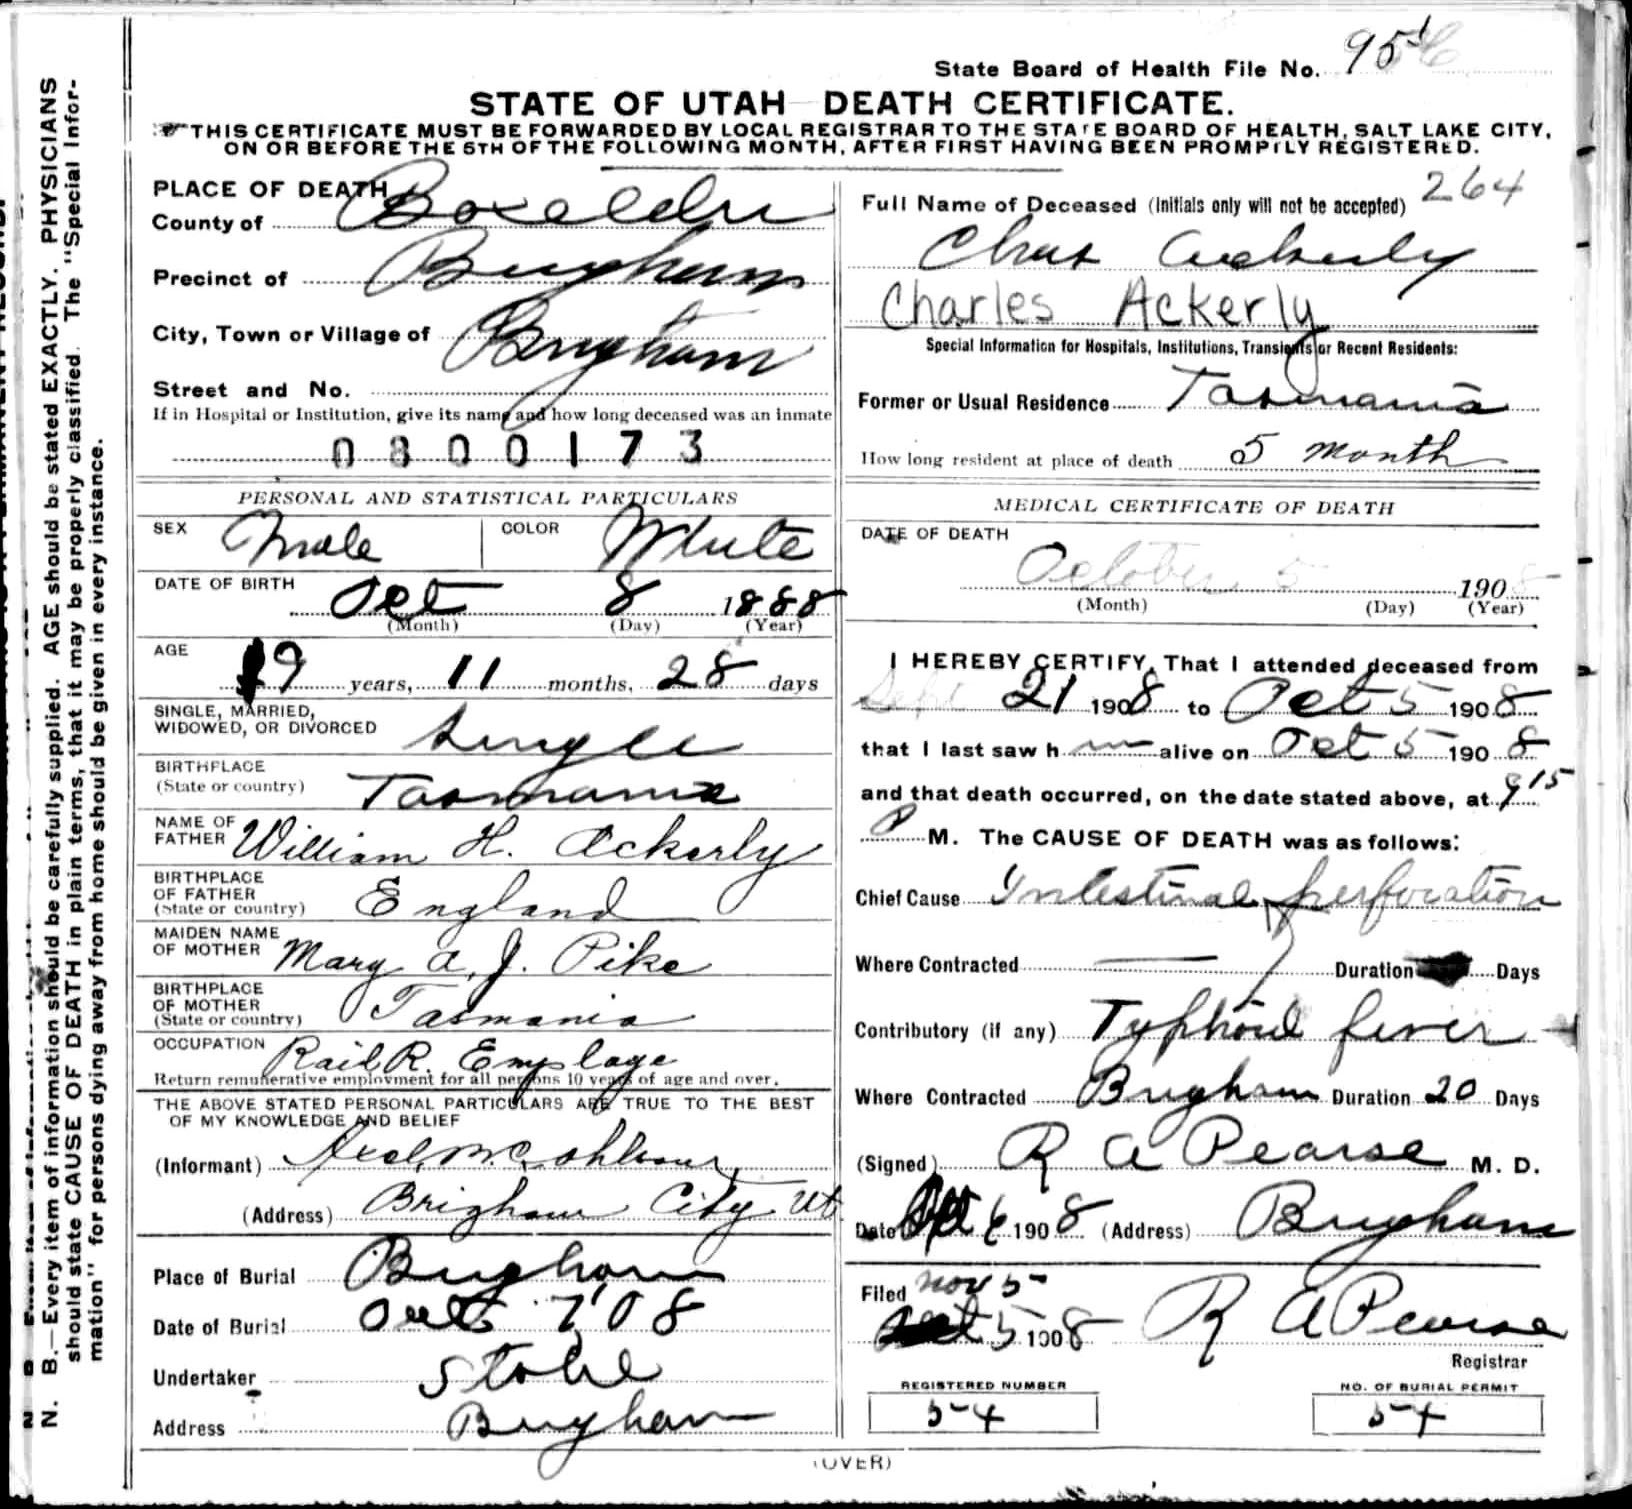 State Board of Health File No. 95
STATE OF UTAH DEATH CERTIFICATE.
THIS CERTIFICATE MUST BE FORWARDED BY LOCAL REGISTRAR TO THE STATE BOARD OF HEALTH, SALT LAKE CITY,
ON OR BEFORE THE 5TH OF THE FOLLOWING MONTH, AFTER FIRST HAVING BEEN PROMPTLY REGISTERED.
PLACE OF DEATH
County of Boxelder
Precinct of Brigham
City, Town or Village of Brigham
Street and No.
If in Hospital or Institution, give its name and how long deceased was an inmate
0800173
PERSONAL AND STATISTICAL PARTICULARS
SEX Male COLOR White
DATE OF BIRTH
Oct 8 1888
(Month) (Day) (Year)
AGE
19 years, 11 months, 28 days
SINGLE, MARRIED,
WIDOWED, OR DIVORCED Single
BIRTHPLACE
(State or country) Tasmania
NAME OF
FATHER William H. Ackerly
BIRTHPLACE
OF FATHER
(State or country) England
MAIDEN NAME
OF MOTHER Mary A. J. Pike
BIRTHPLACE
OF MOTHER
(State or country) Tasmania
OCCUPATION Rail R. Employe
Return remunerative employment for all persons 10 years of age and over.
THE ABOVE STATED PERSONAL PARTICULARS ARE TRUE TO THE BEST
OF MY KNOWLEDGE AND BELIEF
(Informant)
(Address) Brigham City Ut
Place of Burial Brigham
Date of Burial Oct 7 '08
Undertaker
Address Brigham
Full Name of Deceased (Initials only will not be accepted) 264
Chas Ackerly
Charles Ackerly
Special Information for Hospitals, Institutions, Transients or Recent Residents:
Former or Usual Residence Tasmania
How long resident at place of death 5 month
MEDICAL CERTIFICATE OF DEATH
DATE OF DEATH
October 5 1908
(Month) (Day) (Year)
I HEREBY CERTIFY, That I attended deceased from
Sept 21 1908 to Oct 5 1908
that I last saw him alive on Oct 5 1908
and that death occurred, on the date stated above, at 9 15
P M. The CAUSE OF DEATH was as follows:
Chief Cause Intestinal perforation
Where Contracted — Duration Days
Contributory (if any) Typhoid fever
Where Contracted Brigham Duration 20 Days
(Signed) R A Pearse M. D.
Date Oct 6 1908 (Address) Brigham
Filed Nov 5
5 1908 R A Pearse
Registrar
REGISTERED NUMBER
54
NO. OF BURIAL PERMIT
54
(OVER)
N. B.—Every item of information should be carefully supplied. AGE should be stated EXACTLY. PHYSICIANS
should state CAUSE OF DEATH in plain terms, that it may be properly classified. The "Special Infor-
mation" for persons dying away from home should be given in every instance.